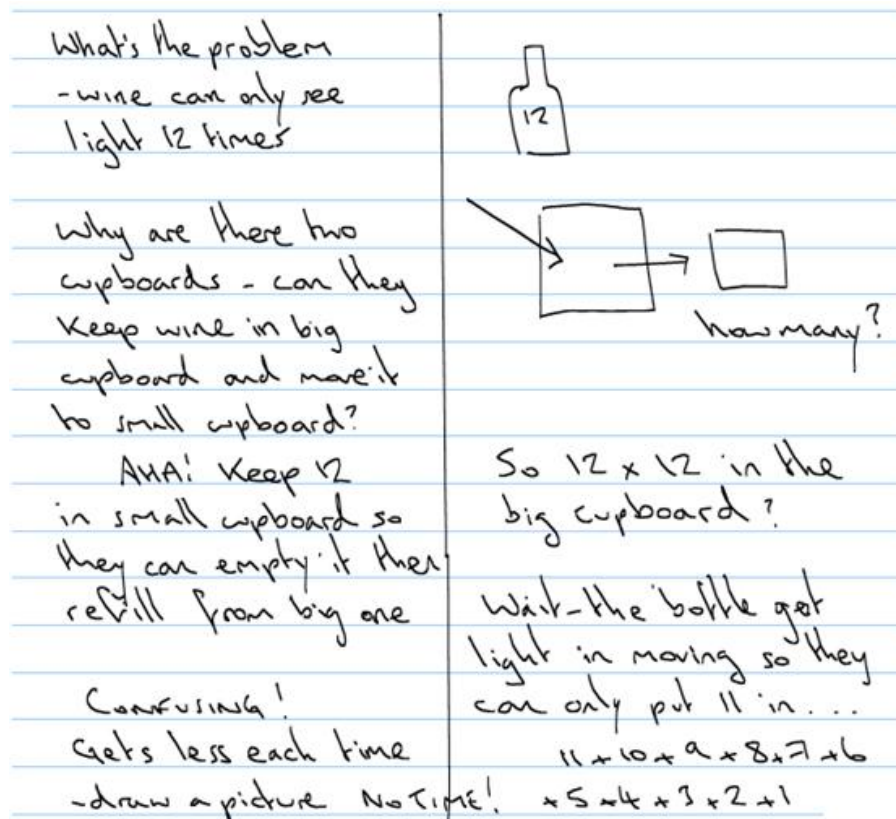 What's the problem
-wine can only see
light 12 times
Why are there two
cupboards - can they
keep wine in big
cupboard and move it
to small cupboard?
AHA! Keep 12
in small cupboard so
they can empty it then
refill from big one
CONFUSING!
Gets less each time
-draw a picture NO TIME!
12
how many?
So 12 x 12 in the
big cupboard?
Wait-the bottle got
light in moving so they
can only put 11 in...
11+10+9+8+7+6
+5+4+3+2+1